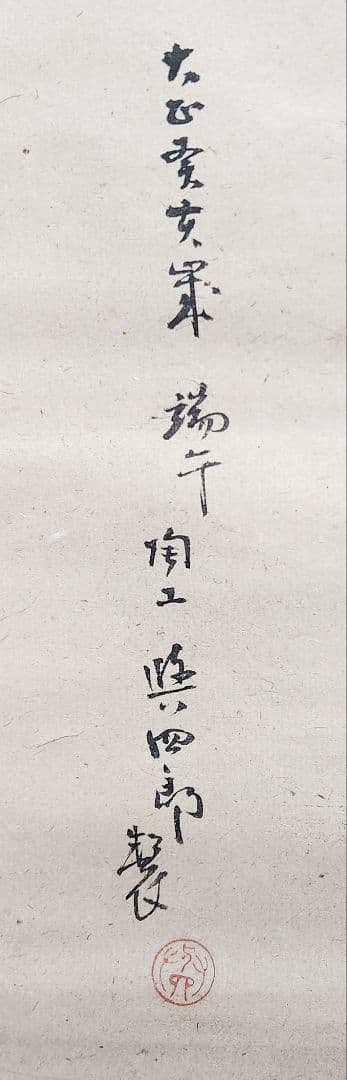 大正癸亥歳　端午　陶工　與四郎　製